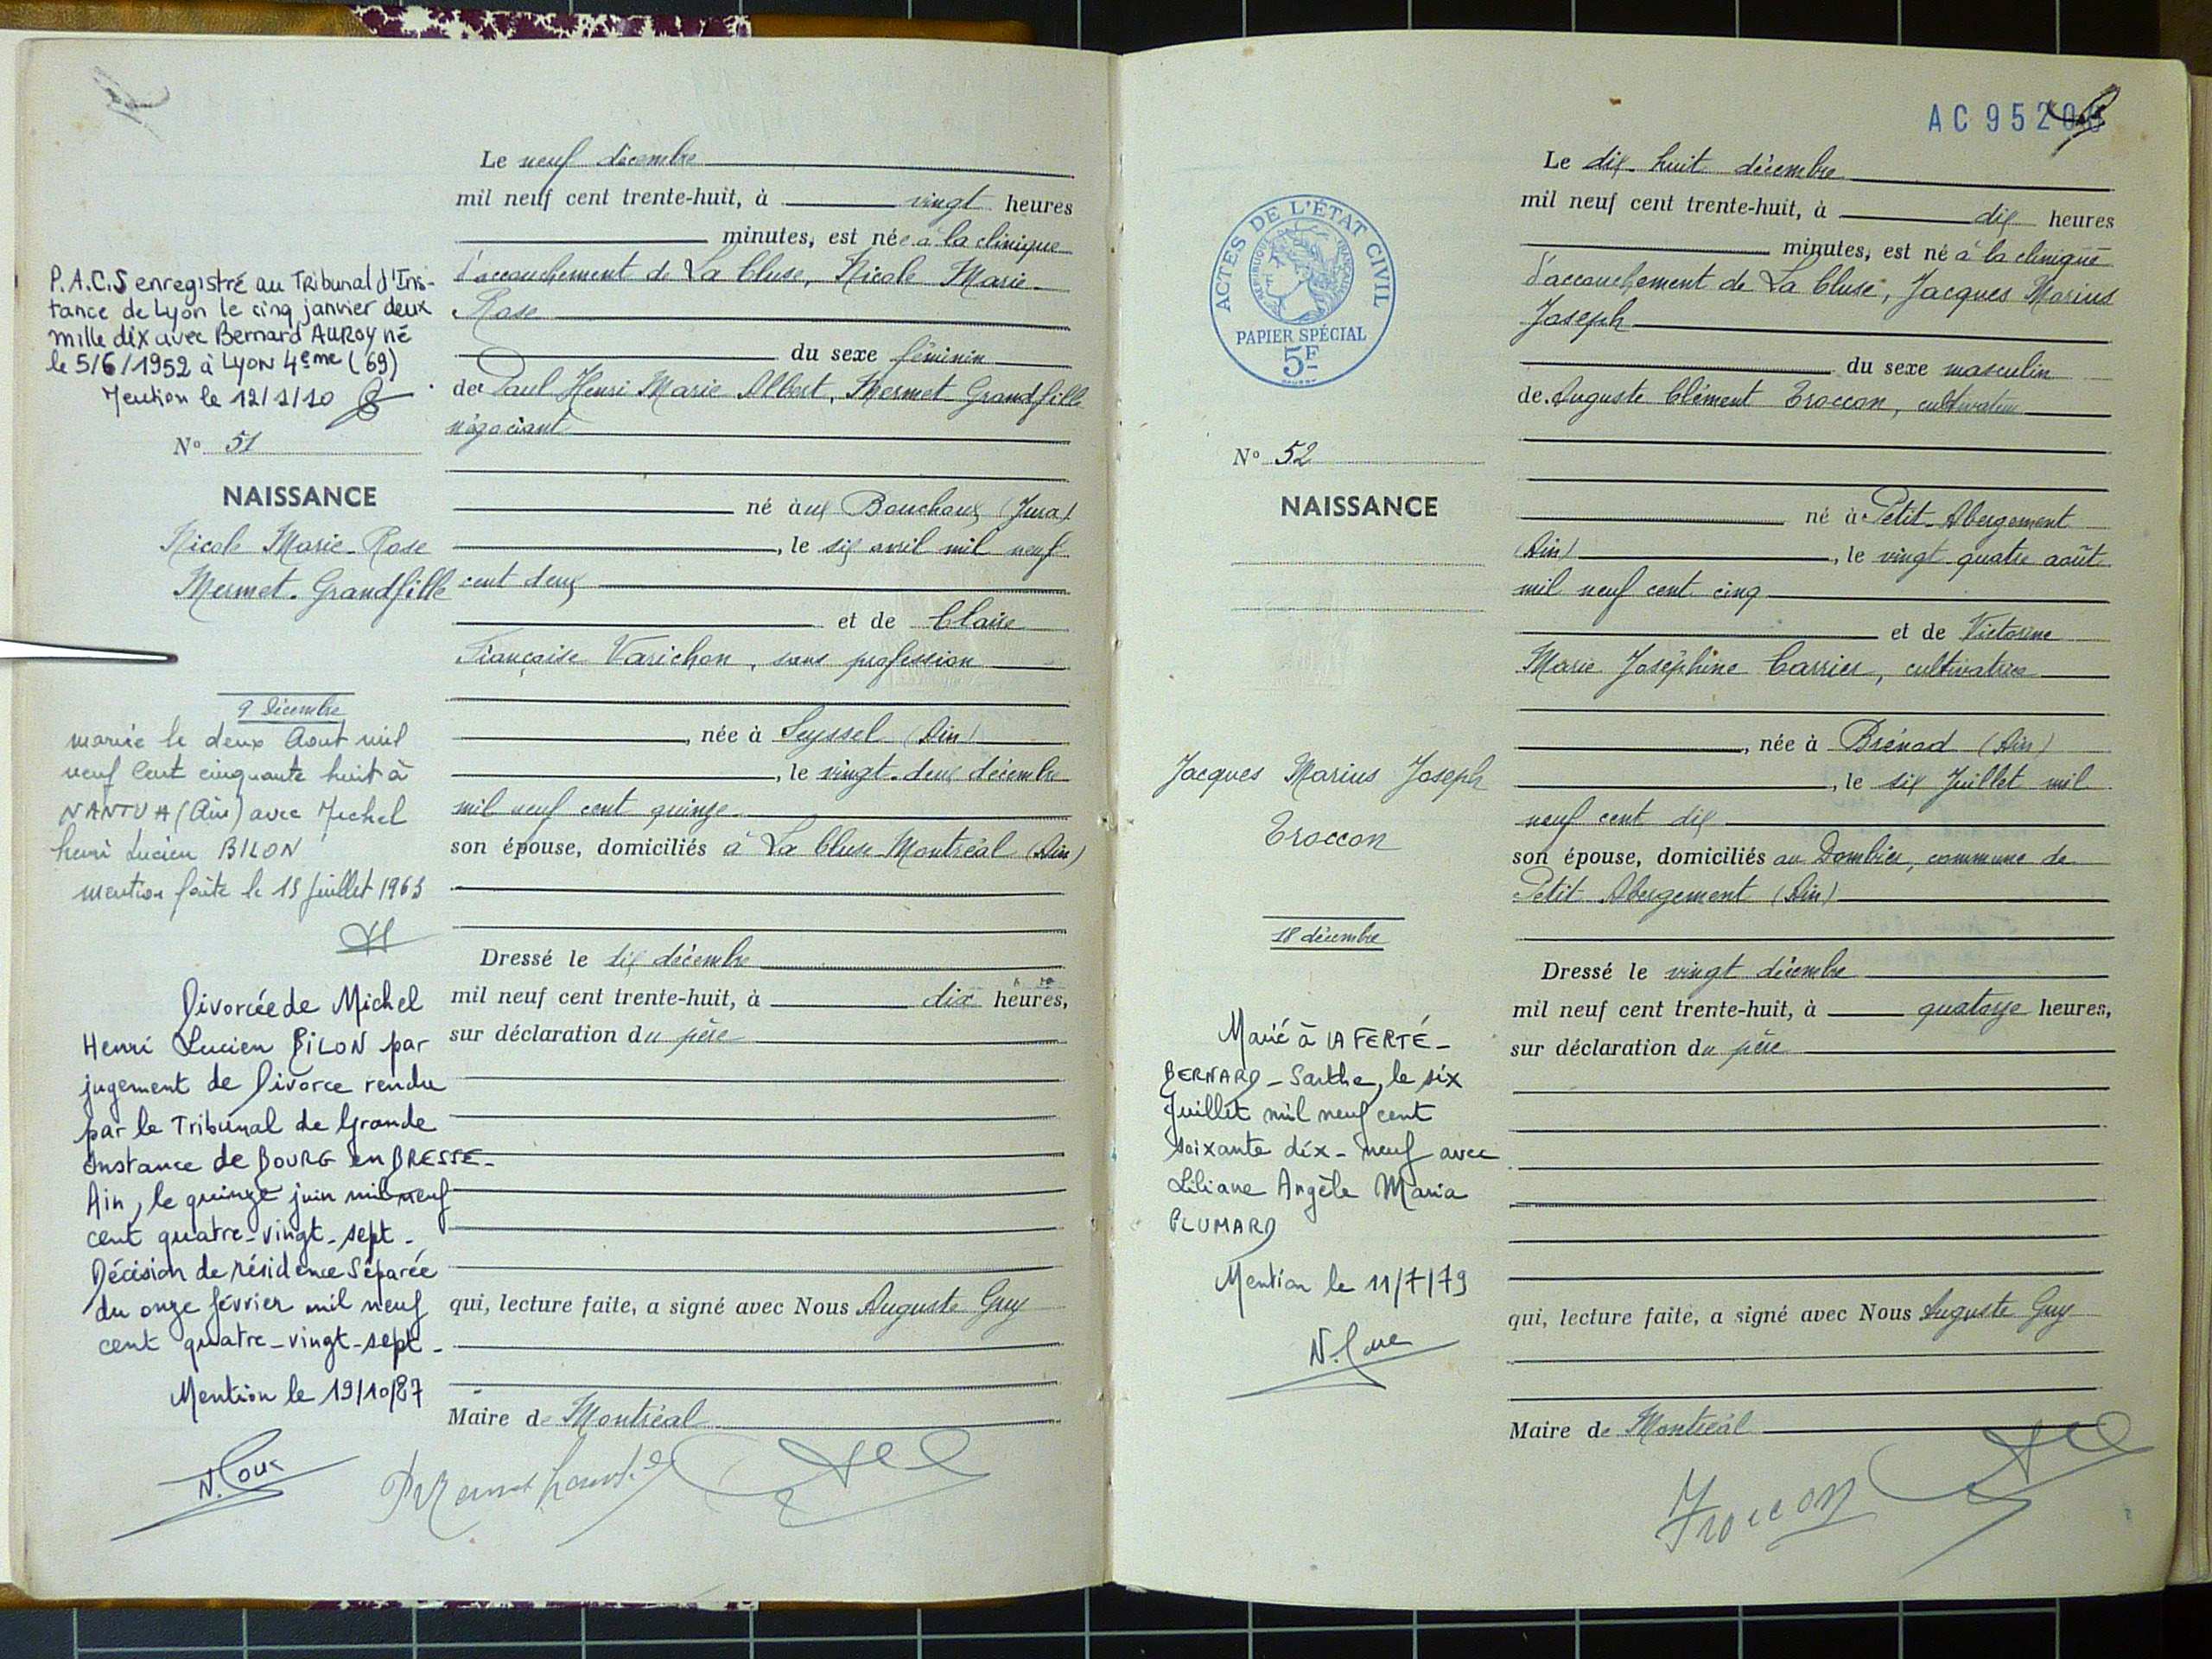 P.A.C.S enregistré au Tribunal d'Ins-
tance de Lyon le cinq janvier deux
mille dix avec Bernard AUROY né
le 5/6/1952 à Lyon 4eme (69)
Mention le 12/1/10
N° 51
NAISSANCE
Nicole Marie-Rose
Mermet-Grandfille
9 décembre
mariée le deux Aout mil
neuf cent cinquante huit à
NANTUA (Ain) avec Michel
henri Lucien BILON
mention faite le 15 Juillet 1963
Divorcée de Michel
Henri Lucien BILON par
jugement de Divorce rendu
par le Tribunal de Grande
Instance de BOURG en BRESSE-
Ain, le quinze juin mil neuf
cent quatre-vingt-sept-
Décision de résidence Séparée
du onze février mil neuf
cent quatre-vingt-sept-
Mention le 19/10/87
Le neuf décembre
mil neuf cent trente-huit, à vingt heures
minutes, est née à la clinique
d'accouchement de La Cluse, Nicole Marie-
Rose
du sexe féminin
de Paul Henri Marie Albert, Mermet-Grandfille
négociant
né aux Bouchoux (Jura)
, le six avril mil neuf
cent deux
et de Claire
Françoise Varichon, sans profession
, née à Seyssel (Ain)
, le vingt-deux décembre
mil neuf cent quinze
son épouse, domiciliés à La Cluse Montréal (Ain)
Dressé le dix décembre
mil neuf cent trente-huit, à dix heures,
sur déclaration du père
qui, lecture faite, a signé avec Nous Auguste Guy
Maire de Montréal
AC 952
ACTES DE L'ÉTAT CIVIL
RÉPUBLIQUE FRANÇAISE
PAPIER SPÉCIAL
5F
N° 52
NAISSANCE
Jacques Marius Joseph
Troccon
18 décembre
Marié à LA FERTÉ-
BERNARD-Sarthe, le six
Juillet mil neuf cent
soixante dix-neuf avec
Liliane Angèle Maria
PLUMARD
Mention le 11/7/79
Le dix-huit décembre
mil neuf cent trente-huit, à dix heures
minutes, est né à la clinique
d'accouchement de La Cluse, Jacques Marius
Joseph
du sexe masculin
de Auguste Clément Troccon, cultivateur
né à Petit-Abergement
(Ain), le vingt quatre août
mil neuf cent cinq
et de Victorine
Marie Joséphine Carrier, cultivatrice
, née à Brénod (Ain)
, le six Juillet mil
neuf cent dix
son épouse, domiciliés au Dombier, commune de
Petit Abergement (Ain)
Dressé le vingt décembre
mil neuf cent trente-huit, à quatorze heures,
sur déclaration du père
qui, lecture faite, a signé avec Nous Auguste Guy
Maire de Montréal
Troccon